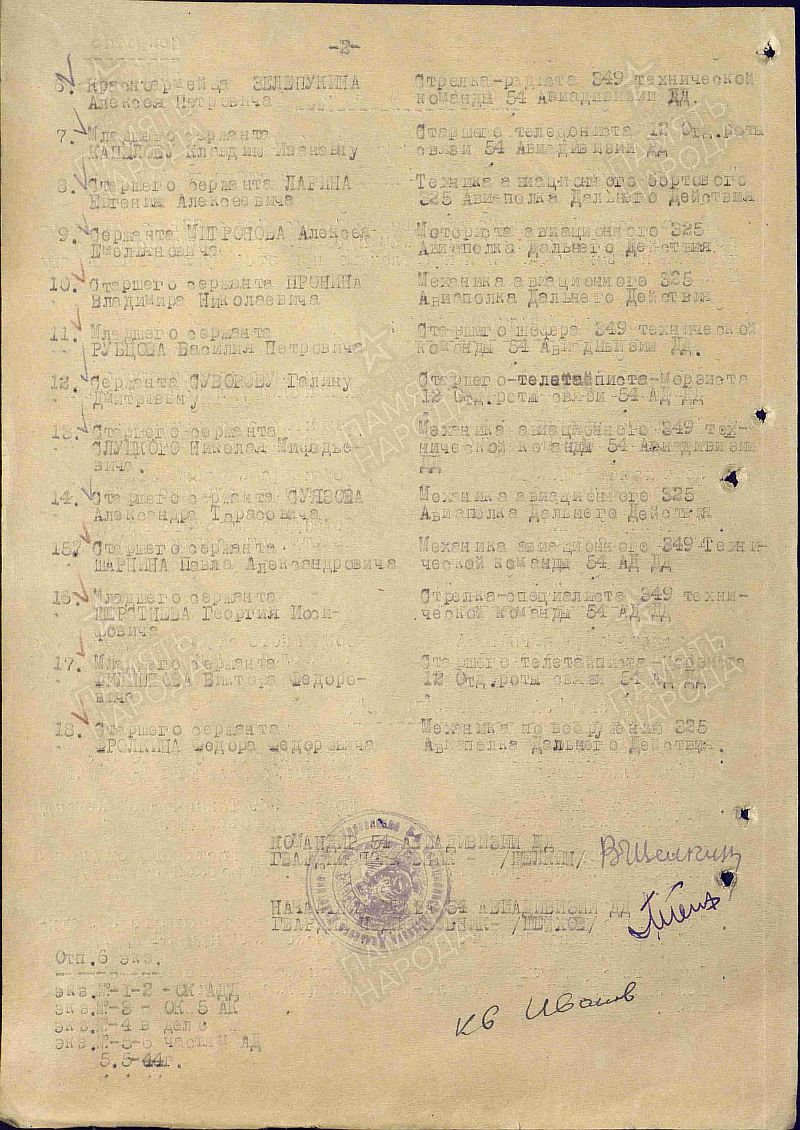 -2-
6. Красноармейца ЗЕЛЕПУКИНА
Алексея Петровича
Стрелка-радиста 349 технической
команды 54 Авиадивизии ДД.
7. Младшего сержанта
Клавдию Ивановну
Старшего телефониста 12 Отд.роты
связи 54 Авиадивизии ДД
8. Старшего сержанта ЛАРИНА
Евгения Алексеевича
Техника авиационного бортового
325 Авиаполка Дальнего Действия
9. Сержанта МИТРОНОВА Алексея
Емельяновича
Моториста авиационного 325
Авиаполка Дальнего Действия.
10. Старшего сержанта ПРОНИНА
Владимира Николаевича
Механика авиационного 325
Авиаполка Дальнего Действия
11. Младшего сержанта
РУБЦОВА Василия Петровича
Старшего шофера 349 технической
команды 54 Авиадивизии ДД.
12. Сержанта СУВОРОВУ Галину
Дмитриевну
Старшего-телетайписта-Морзиста
12 Отд.роты связи 54 АД ДД
13. Старшего сержанта
СЛУЦКОГО Николая Мифодье-
вича.
Механика авиационного 349 тех-
нической команды 54 Авиадивизии
ДД
14. Старшего сержанта СУЯЗОВА
Александра Тарасовича
Механика авиационного 325
Авиаполка Дальнего Действия
15. Старшего сержанта
Павла Александровича
Механика авиационного 349 Техни-
ческой команды 54 АД ДД
16. Младшего сержанта
Георгия Иоси-
фовича
Стрелка-специалиста 349 техни-
ческой команды 54 АД ДД
17. Младшего сержанта
Виктора Федоро-
вича
Старшего телетайписта-Морзиста
12 Отд.роты связи 54 АД ДД
18. Старшего сержанта
ФРОЛКИНА Федора Федоровича
Механика по вооружению 325
Авиаполка Дальнего Действия.
КОМАНДИР 54 АВИАДИВИЗИИ ДД
ГВАРДИИ /ЩЕЛКИН/ ВЩелкин
54 АВИАДИВИЗИИ ДД
Отп.6 экз.
экз.№-1-2 - ОК АДД
экз.№-3 - ОК 5 АК
экз.№-4 в дело
экз.№-5-6 частям АД
5.5-44г.
кв Иванов
ПАМЯТЬ
НАРОДА